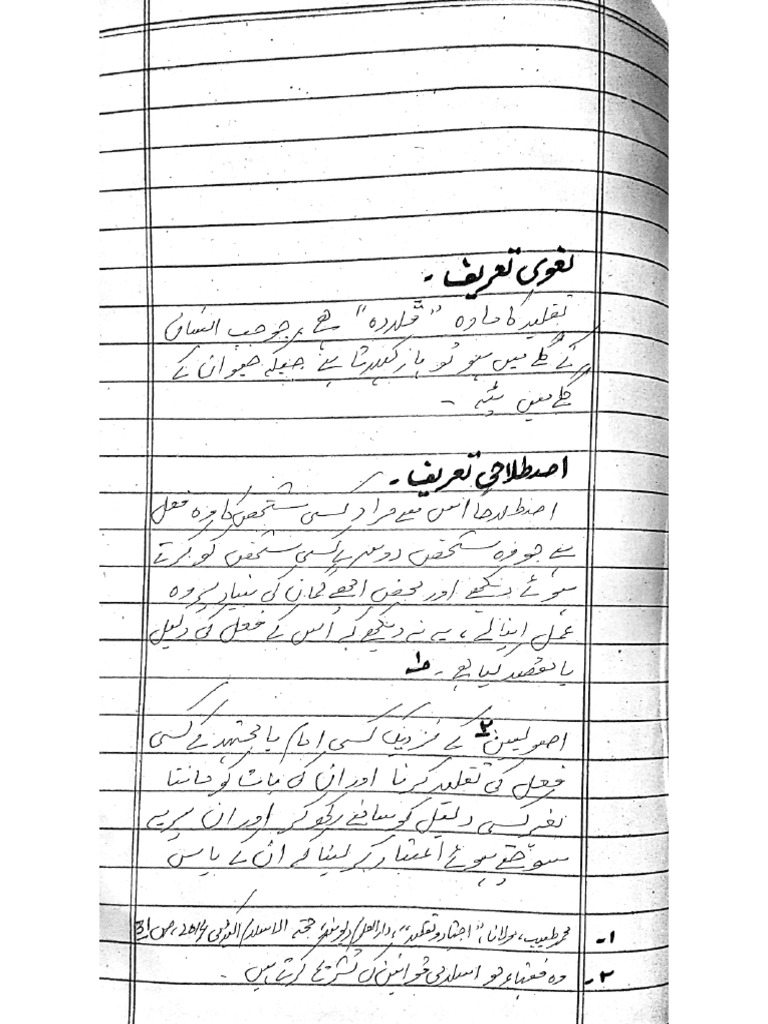 لغوی تعریف ۔
تقلید کا مادہ "قلادہ" ہے جو جب انسان
کے گلے میں ہو تو ہار کہلاتا ہے جبکہ حیوان کے
گلے میں پٹہ ۔
اصطلاحی تعریف ۔
اصطلاحاً اس سے مراد کسی شخص کا وہ فعل
ہے جو وہ شخص دوسرے کسی شخص کو کرتے
ہوئے دیکھے اور محض اچھے گمان کی بنیاد پر وہ
عمل اپنالے، یہ نہ دیکھے کہ اُس کے فعل کی دلیل
یا مقصد کیا ہے ۔ ۱
اصولیین ۲ کے نزدیک کسی امام یا مجتہد کے کسی
فعل کی تقلید کرنا اور ان کی بات کو ماننا
بغیر کسی دلیل کو سامنے رکھ کر اور ان پر یہ
سوچتے ہوئے اعتبار کر لینا کہ ان کے پاس
۱۔ محمد طیب، مولانا، "اجتہاد و تقلید"، دارالعلوم دیوبند، حجۃ الاسلام اکیڈمی، 2014، ص 31
۲۔ وہ فقہاء جو اسلامی قوانین کی تشریح کرتے ہیں ۔